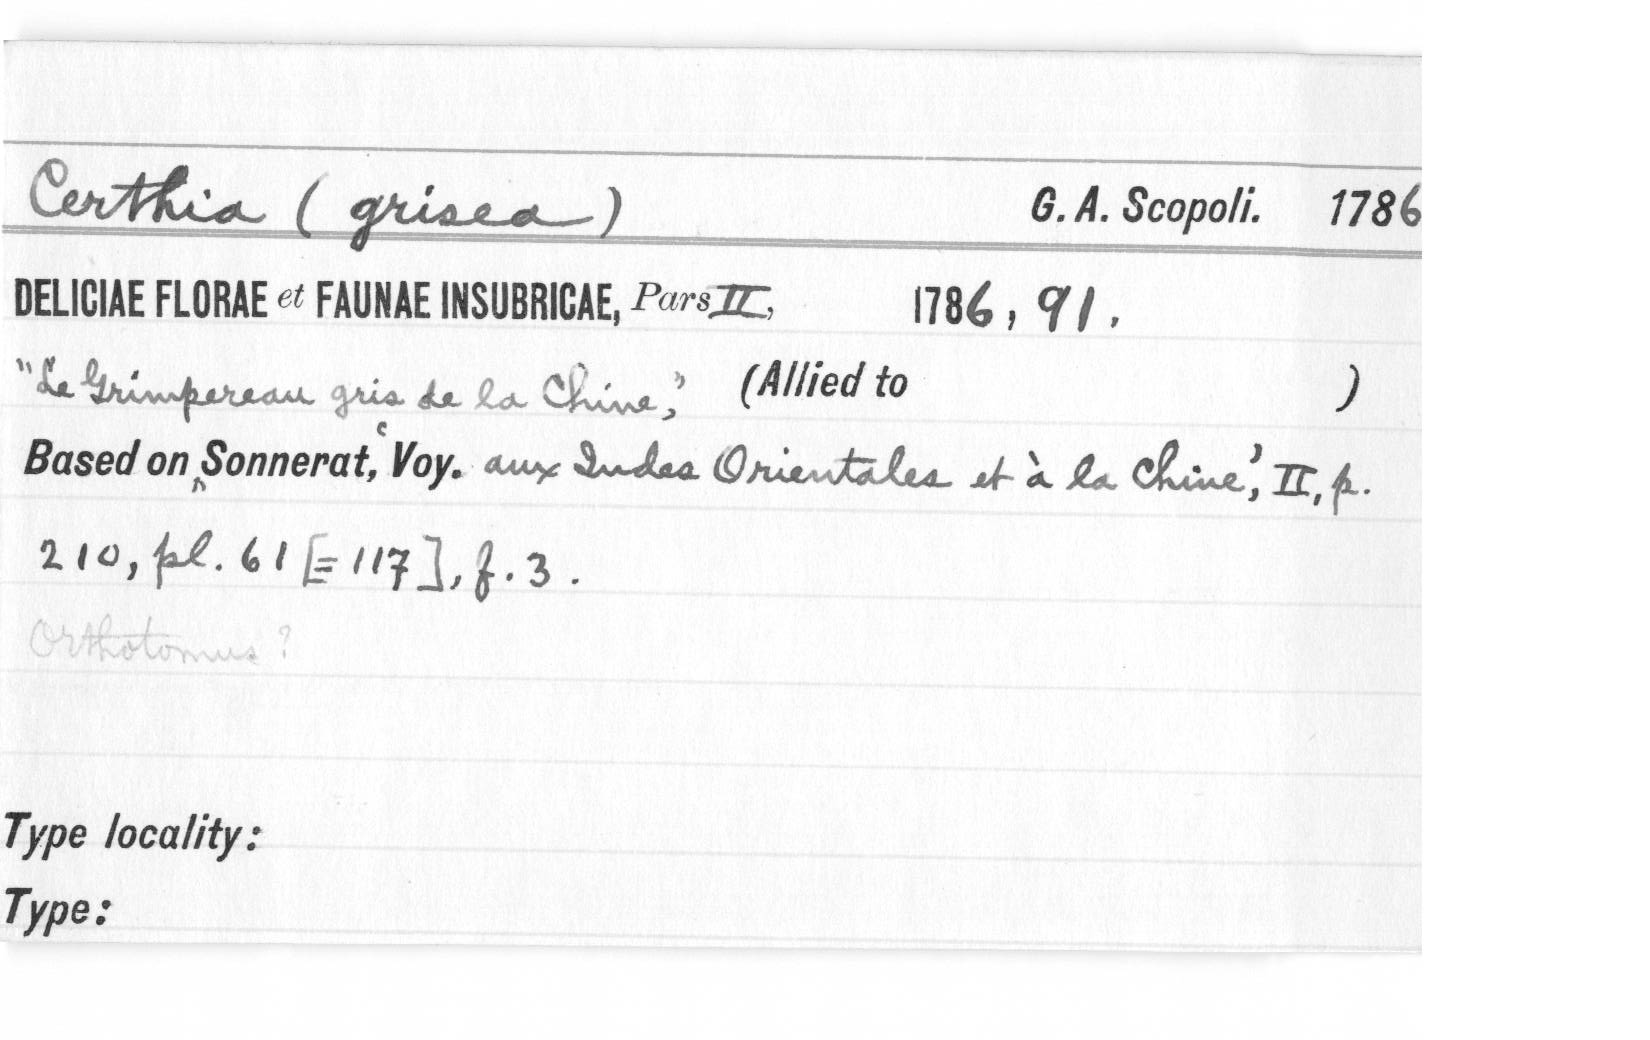 Certhia (grisea) G. A. Scopoli. 1786
DELICIAE FLORAE et FAUNAE INSUBRICAE, Pars II, 1786, 91.
"Le Grimpereau gris de la Chine," (Allied to )
Based on Sonnerat, ‘Voy. aux Indes Orientales et à la Chine,’ II, p.
210, pl. 61 [=117], f. 3.
Orthotomus?
Type locality:
Type: